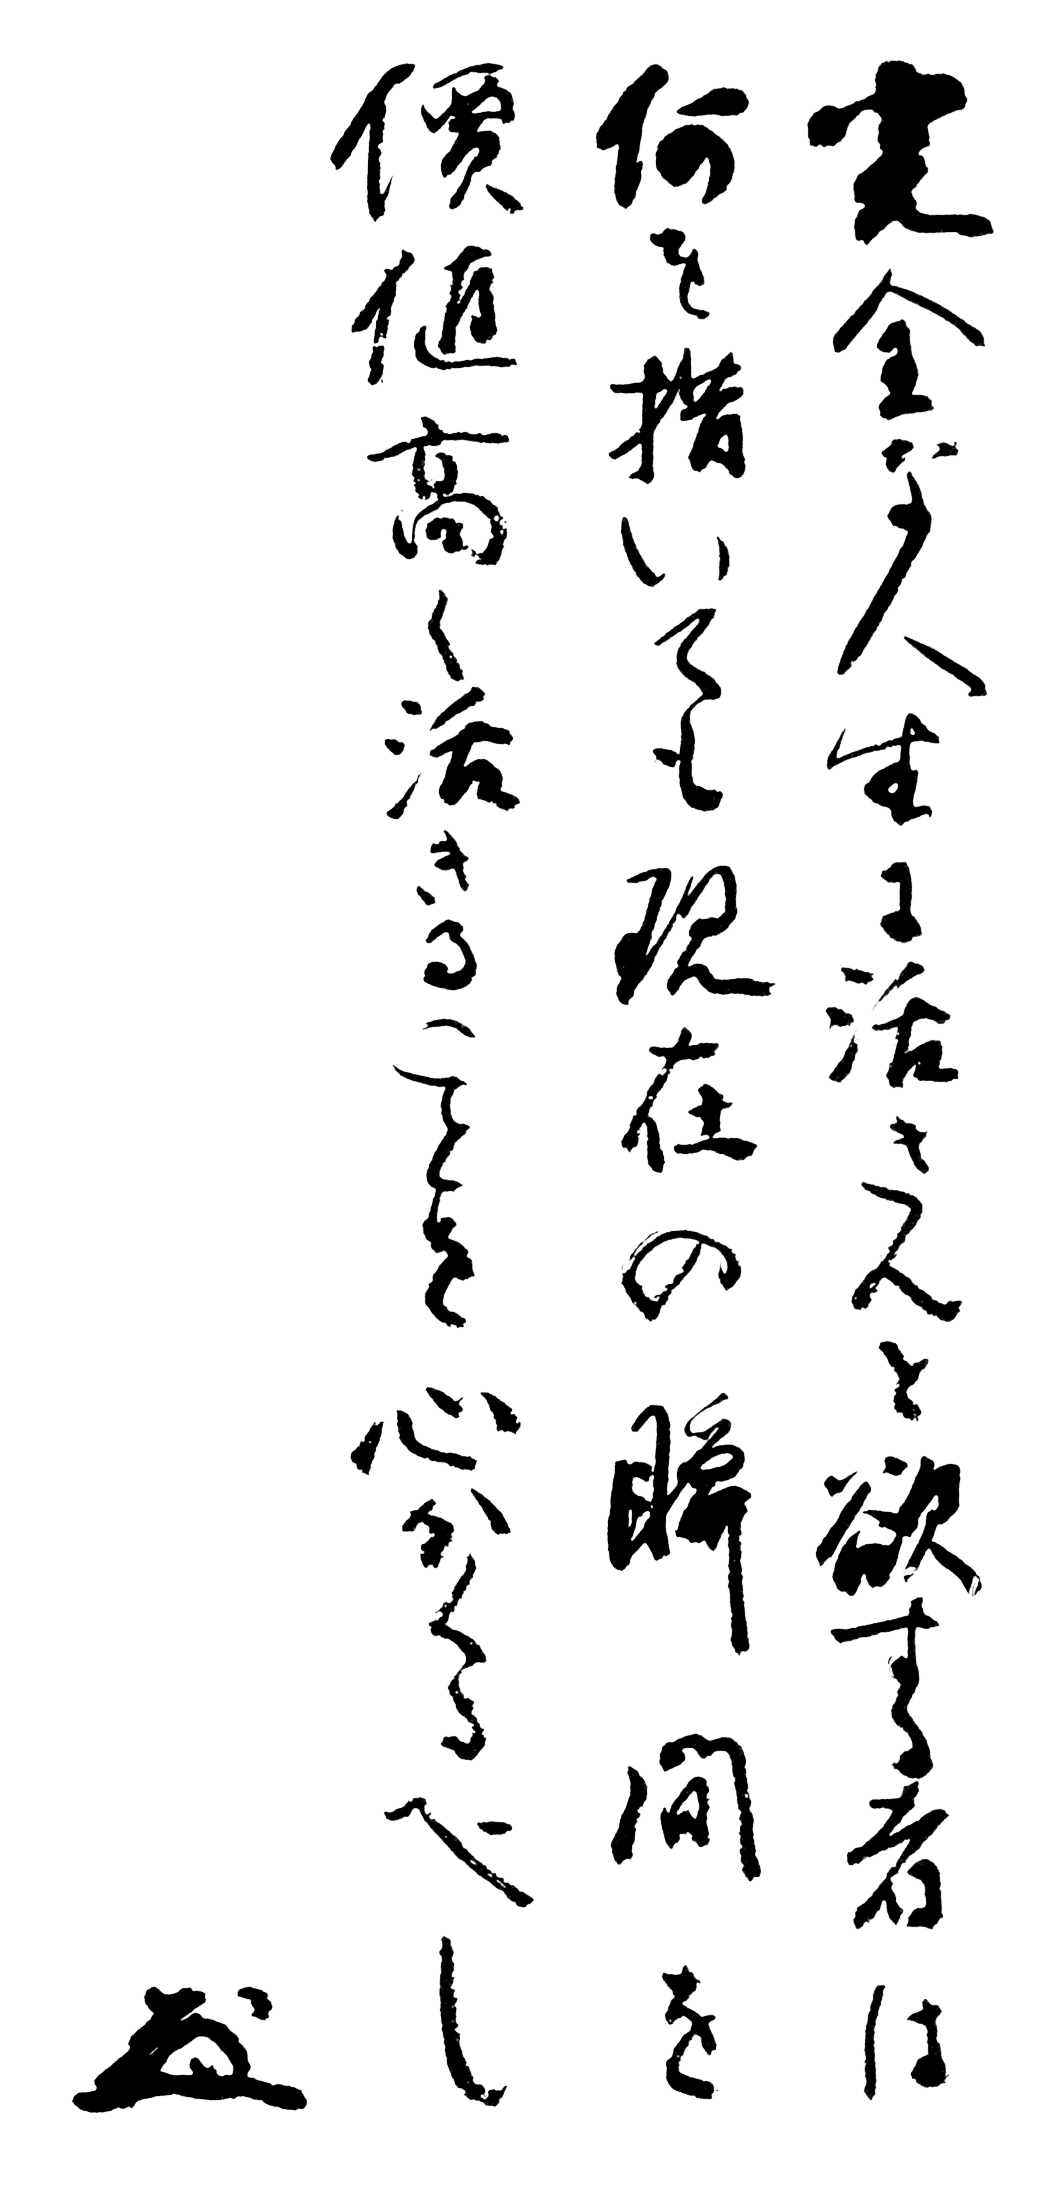 完全な人生に活きんと欲する者は
何を措いても現在の瞬間を
價値高く活きることを心がくるべし